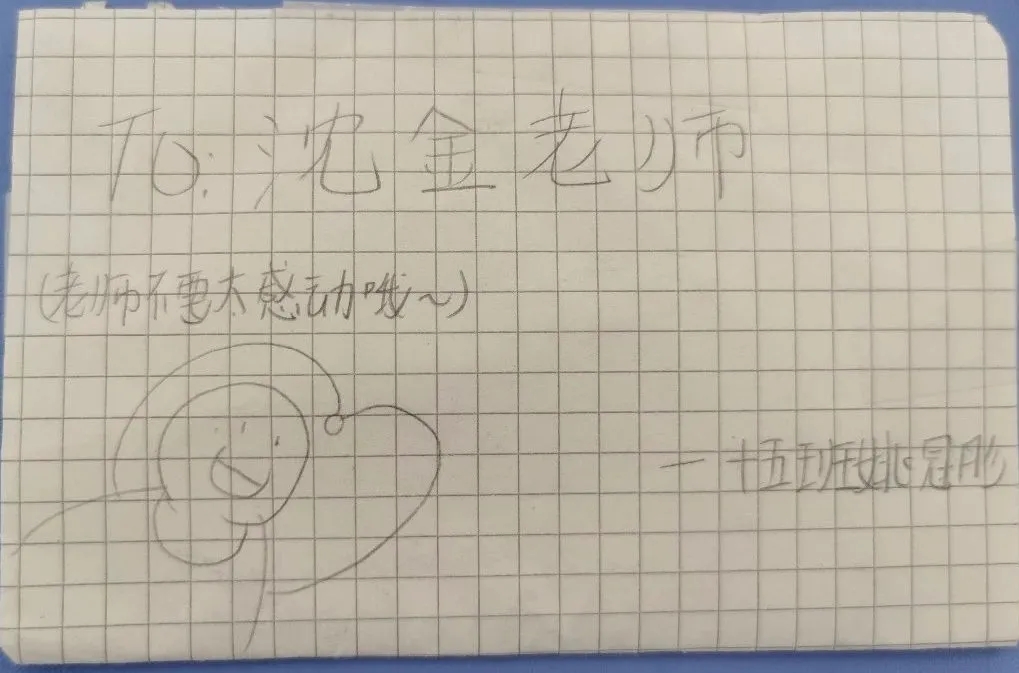 To: 沈金老师
(老师不要太感动哦~)
— 十五班姚冠彤